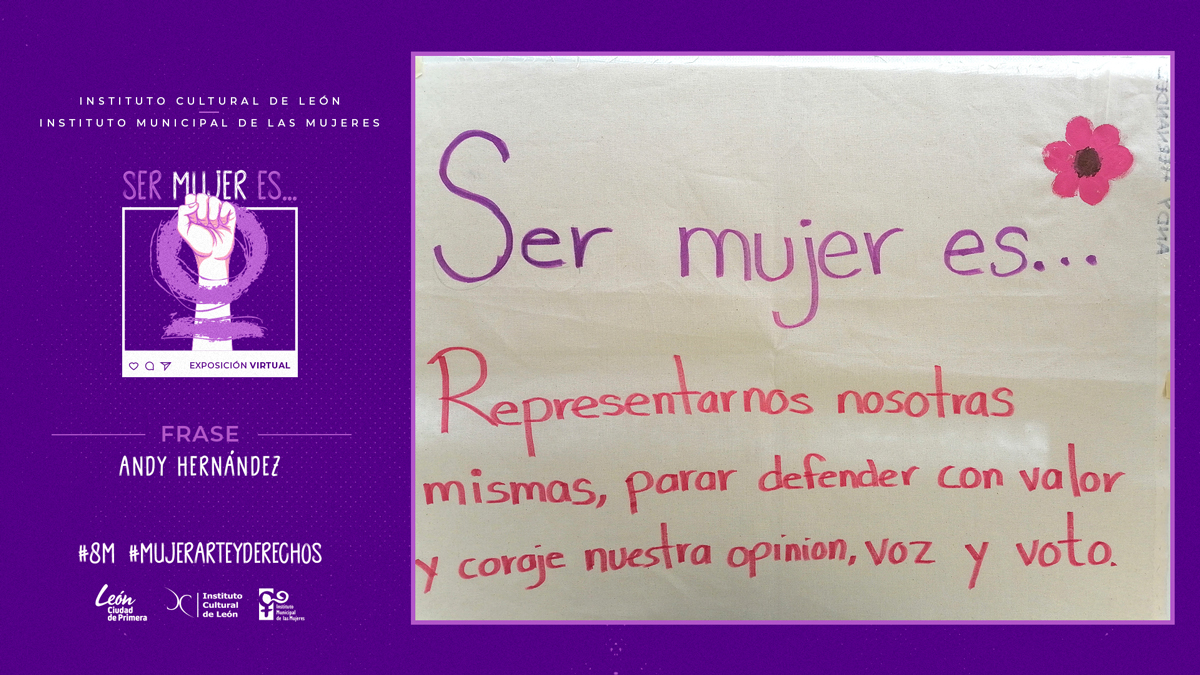 INSTITUTO CULTURAL DE LEÓN
INSTITUTO MUNICIPAL DE LAS MUJERES
SER MUJER ES...
EXPOSICIÓN VIRTUAL
FRASE
ANDY HERNÁNDEZ
#8M #MUJERARTEYDERECHOS
León
Ciudad
de Primera
Instituto
Cultural
de León
Instituto
Municipal
de las Mujeres
Ser mujer es...
Representarnos nosotras
mismas, parar defender con valor
y coraje nuestra opinion, voz y voto.